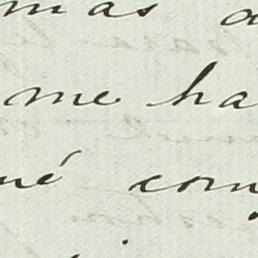 mas a
me ha
né com